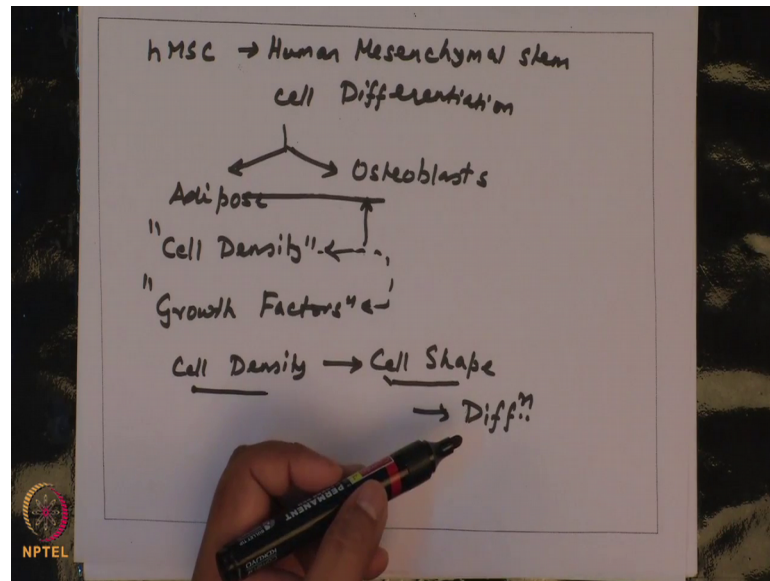 hMSC → Human Mesenchymal stem
cell Differentiation
Adipose Osteoblasts
"Cell Density"
"Growth Factors"
Cell Density → Cell Shape
→ Diffⁿ?
PERMANENT
NPTEL